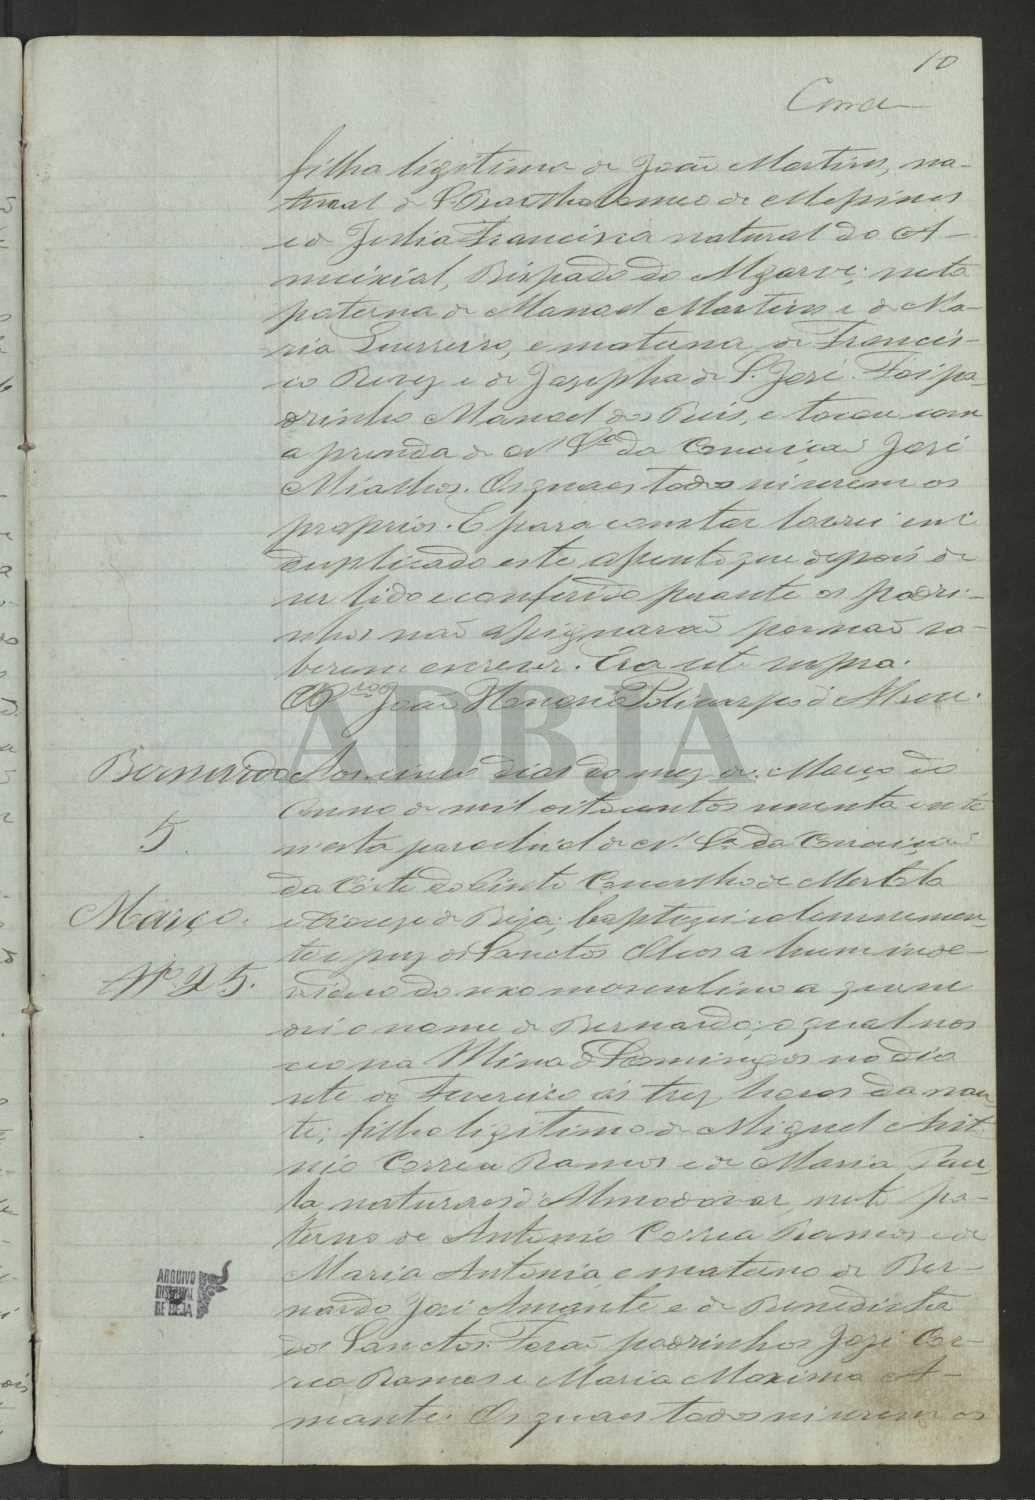 10
filha ligitima de João Martins, na-
tural de S. Bartholomeo de Mesines
e de Julia Francisca natural do A-
meixial, Bispado do Algarve; neta
paterna de Manoel Martins e de Ma-
ria Guerreiro, e materna de Francis-
co Perez e de Jozepha de S. José. Foi pa-
drinho Manoel dos Reis, e tocou com
a prenda de N. Srª da Conceição José
. Os quaes todos os
proprios. E para constar lavrei em
duplicado este assento que depois de
ser lido e conferido perante os padri-
nhos não assignarão por não sa-
berem escrever. Era ut supra.
João Honorio Policarpo d'
Bernardo
5
Março.
Nº 25.
Aos cinco dias do mez de Março do
anno de mil oitocentos
nesta parochial de N. Sª da Conceição
da Côrte do Pinto Concelho de Mertola
e Diocese de Beja; baptizei solemnemen-
te e puz os Sanctos Oleos a hum inde-
viduo do sexo masculino a quem
dei o nome de Bernardo; o qual nas
ceo na Mina de S. Domingos no dia
sete de Fevereiro ás trez horas da nou-
te; filho ligitimo de Miguel Anto
nio Correa Ramos e de Maria
naturaes d'Almodovar, neto pa-
terno de Antonio Correa Ramos e de
Maria Antonia e materno de Ber-
nardo José Amante e de Benedicta
dos Sanctos. Forão padrinhos José Cor-
rea Ramos e Maria Maxima A-
mante. Os quaes todos os
ADBJA
ARQUIVO
DISTRITAL
DE BEJA